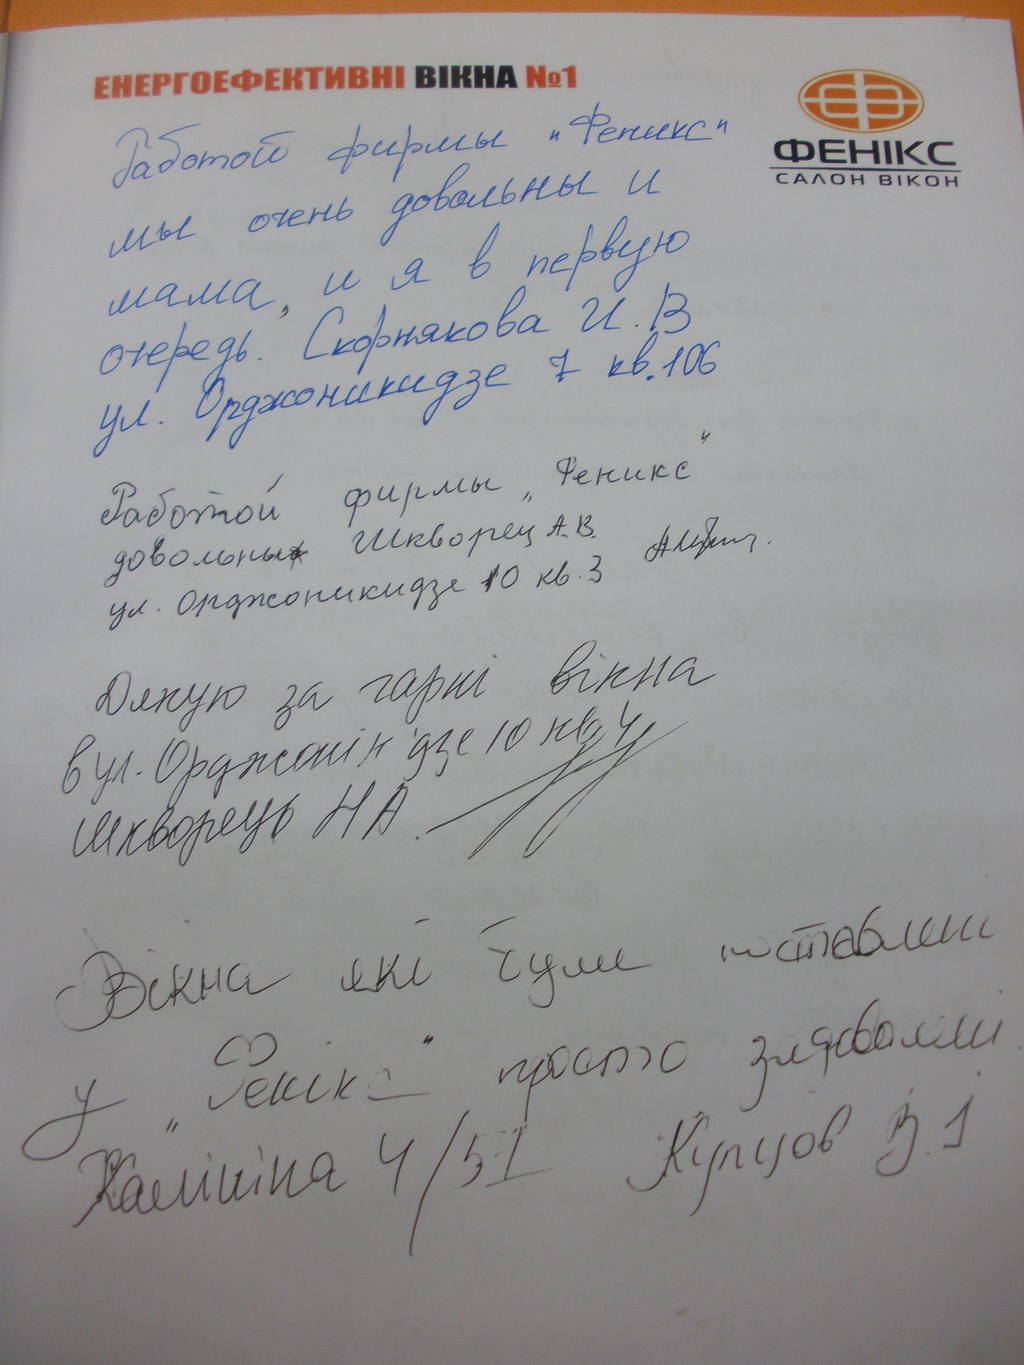 ЕНЕРГОЕФЕКТИВНІ ВІКНА №1
ФЕНІКС
САЛОН ВІКОН
Работой фирмы "Феникс"
мы очень довольны и
мама, и я в первую
очередь. Скорнякова И.В
ул. Орджоникидзе 7 кв.106
Работой фирмы "Феникс"
довольны Шкворец А.В.
ул. Орджоникидзе 10 кв.3
Дякую за гарні вікна
вул. Орджонік'дзе 10 кв 4
Шкворець Н А.
Вікна які були поставлені
у "Фенікс" просто
Калініна 4/51 Купцов В.І